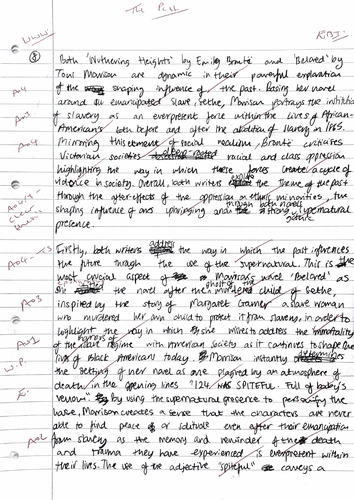 The Past
WWW
RBJ:
Both 'Wuthering Heights' by Emily Brontë and 'Beloved' by
Toni Morrison are dynamic in their powerful exploration
AO4 of the shaping influence of the past. Basing her novel
around an emancipated slave, Sethe, Morrison portrays the
AO3 of slavery as an everpresent force within the lives of African-
American's both before and after the abolition of slavery in 1865.
AO4 Mirroring this element of social realism, Brontë criticises
Victorian societies racial and class oppression
highlighting the way in which these forces create a cycle of
violence in society. Overall, both writers the theme of the past
through the after effects of the oppression on ethnic minorities, the
shaping influence of ones upbringing and through both novels strong gothic supernatural
presence.
Firstly, both writers address the way in which the past influences
the future through the use of the supernatural. This is the
most crucial aspect of Morrison's novel 'Beloved' as
the novel after the ghost of the murdered child of Sethe,
AO3 inspired by the story of Margaret Garner a slave woman
who murdered her own child to protect it from slavery. In order to
highlight the way in which she wishes to address the immortality
AO1 of the horrors of the slave regime with American society as it continues to shape the
lives of Black Americans today. Morrison instantly determines
W.P. the setting of her novel as one plagued by an atmosphere of
death in the opening lines "124 WAS SPITEFUL. Full of baby's
E. venom" by using the supernatural presence to personify the
house, Morrison creates a sense that the characters are never
able to find peace or solitude even after their emancipation
AO2 from slavery as the memory and reminder of the death
and trauma they have experienced is everpresent within
their lives. The use of the adjective "spiteful" conveys a